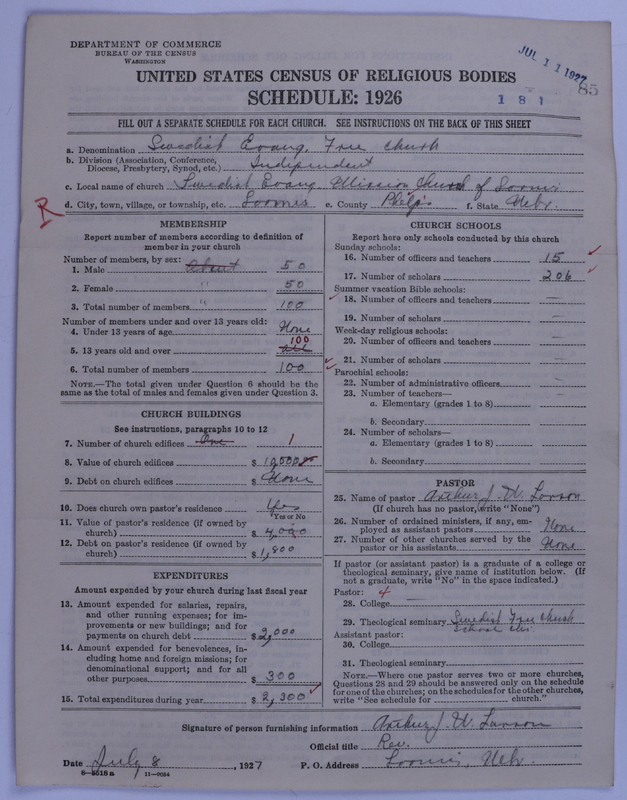 DEPARTMENT OF COMMERCE
BUREAU OF THE CENSUS
WASHINGTON
JUL 11 1927
85
UNITED STATES CENSUS OF RELIGIOUS BODIES
181
SCHEDULE: 1926
FILL OUT A SEPARATE SCHEDULE FOR EACH CHURCH. SEE INSTRUCTIONS ON THE BACK OF THIS SHEET
a. Denomination Swedish Evang. Free Church
b. Division (Association, Conference, Diocese, Presbytery, Synod, etc.) Independent
c. Local name of church Swedish Evang Mission Church of Loomis
R
d. City, town, village, or township, etc. Loomis e. County Phelps f. State Nebr.
MEMBERSHIP
Report number of members according to definition of
member in your church
Number of members, by sex:
1. Male About 50
2. Female " 50
3. Total number of members " 100
Number of members under and over 13 years old:
4. Under 13 years of age None
100
5. 13 years old and over All
6. Total number of members 100
NOTE.—The total given under Question 6 should be the
same as the total of males and females given under Question 3.
CHURCH BUILDINGS
See instructions, paragraphs 10 to 12
7. Number of church edifices One 1
8. Value of church edifices $ 10,500.00
9. Debt on church edifices $ None
10. Does church own pastor's residence Yes
Yes or No
11. Value of pastor's residence (if owned by
church) $ 4,000
12. Debt on pastor's residence (if owned by
church) $ 1,800
EXPENDITURES
Amount expended by your church during last fiscal year
13. Amount expended for salaries, repairs,
and other running expenses; for im-
provements or new buildings; and for
payments on church debt $ 2,000
14. Amount expended for benevolences, in-
cluding home and foreign missions; for
denominational support; and for all
other purposes $ 300
15. Total expenditures during year $ 2,300
CHURCH SCHOOLS
Report here only schools conducted by this church
Sunday schools:
16. Number of officers and teachers 15
17. Number of scholars 206
Summer vacation Bible schools:
18. Number of officers and teachers —
19. Number of scholars —
Week-day religious schools:
20. Number of officers and teachers —
21. Number of scholars —
Parochial schools:
22. Number of administrative officers
23. Number of teachers—
a. Elementary (grades 1 to 8)
b. Secondary
24. Number of scholars—
a. Elementary (grades 1 to 8)
b. Secondary
PASTOR
25. Name of pastor Arthur J. W. Larson
(If church has no pastor, write "None")
26. Number of ordained ministers, if any, em-
ployed as assistant pastors None
27. Number of other churches served by the
pastor or his assistants None
If pastor (or assistant pastor) is a graduate of a college or
theological seminary, give name of institution below. (If
not a graduate, write "No" in the space indicated.)
Pastor: 4
28. College —
29. Theological seminary Swedish Free Church
School
Assistant pastor:
30. College
31. Theological seminary
NOTE.—Where one pastor serves two or more churches,
Questions 28 and 29 should be answered only on the schedule
for one of the churches; on the schedules for the other churches,
write "See schedule for ____ church."
Signature of person furnishing information Arthur J. W. Larson
Official title Rev.
Date July 8, 1927 P. O. Address Loomis, Nebr.
8—5518a 11—9064